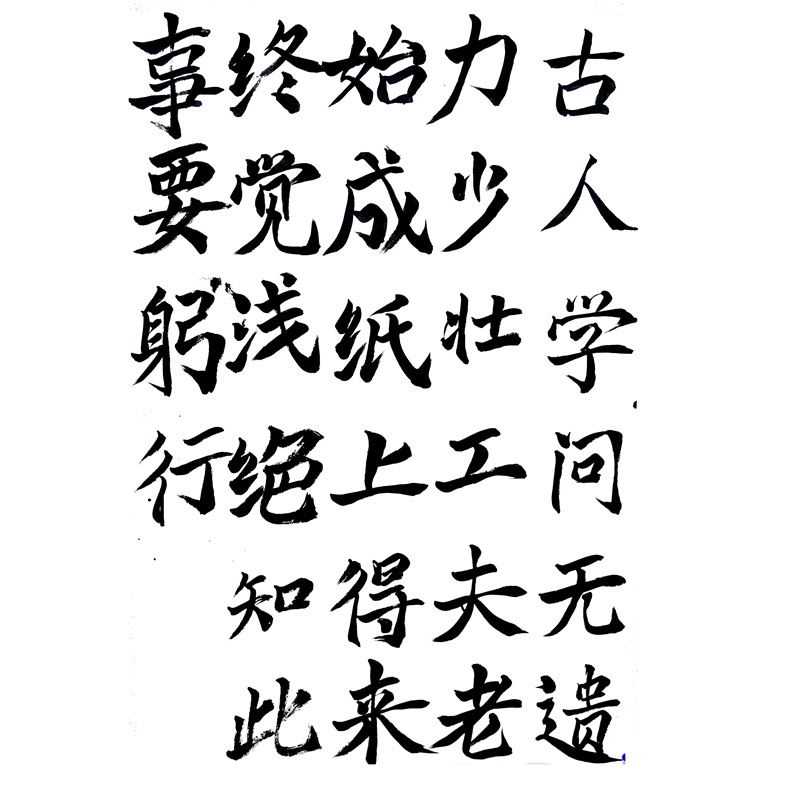 古人学问无遗
力少壮工夫老
始成纸上得来
终觉浅绝知此
事要躬行